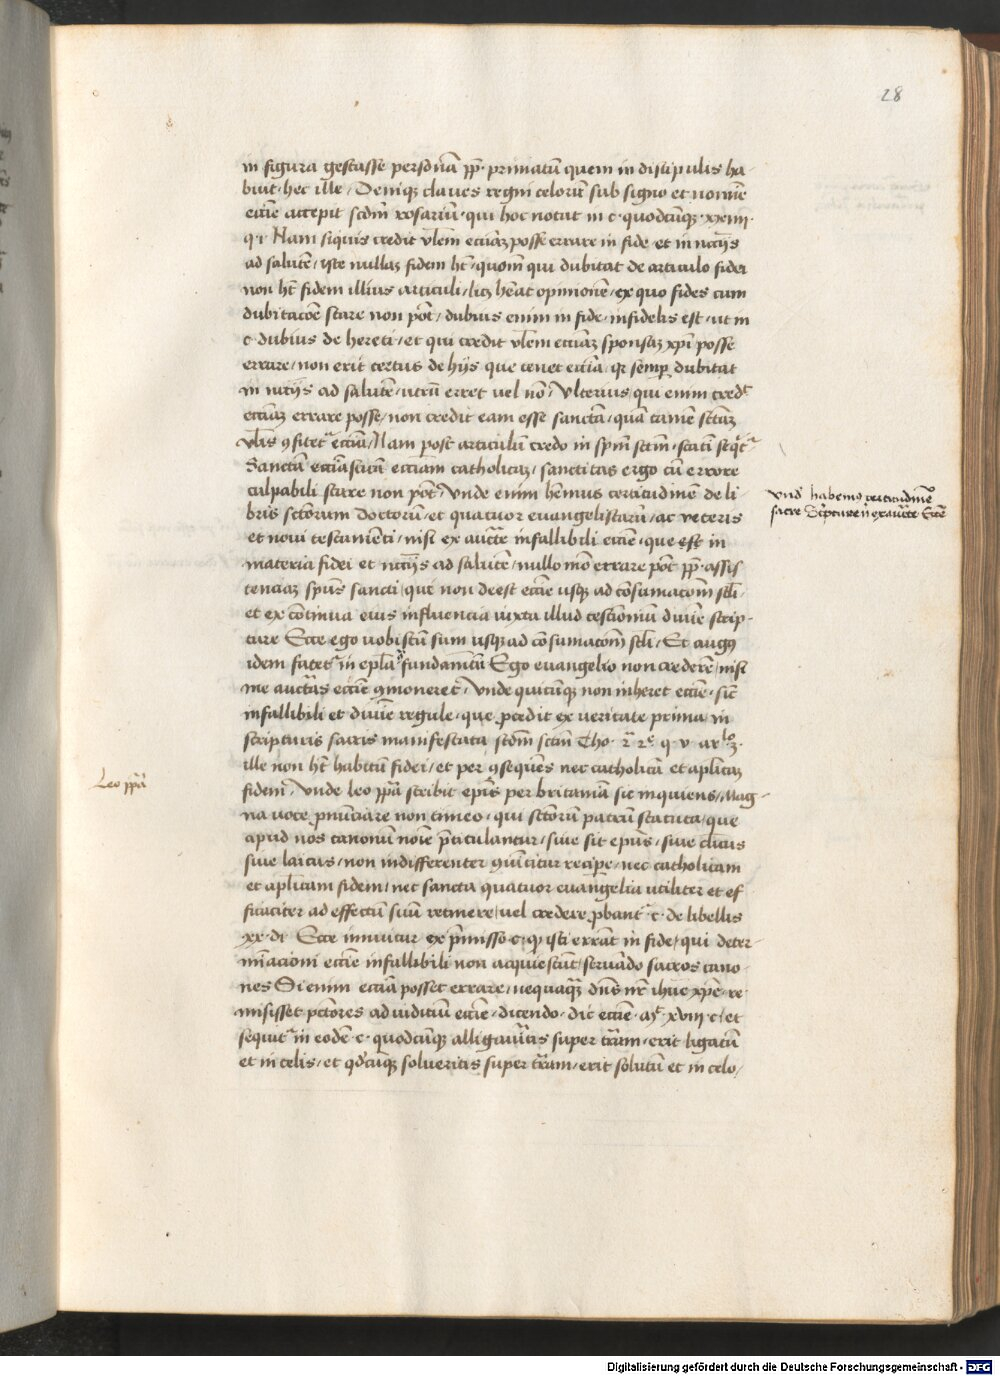 28
in figura gestasse personā pp̄ primatū quem in discipulis ha-
buit · hec ille / Deniqȝ claues regni celorū sub signo et nomīe
ecc̄ie accepit scdm̄ rosariū · qui hoc notat in c · quodcūqȝ · xxiiij ·
q · i · Nam siquis credit vl̄em ecciaȝ posse errare in fide et in nccijs
ad salutē / iste nullaȝ fidem ht̄ · quom̄ qui dubitat de articulo fidei
non ht̄ fidem illius articuli / licȝ hēat opinionē / ex quo fides cum
dubitacōe stare non pōt / dubius enim in fide · infidelis est · ut in
c · dubius de hereti / et qui credit vl̄em ecciaȝ sponsaȝ xp̄i posse
errare / non erit certus de hijs que tenet ecc̄ia / qr semp̄ dubitat
in nccijs ad salutē / utrū erret uel nō / Vlterius qui enim cred̄t
ecciaȝ errare posse / non credit eam esse sanctā / quā tamē sctāȝ
vl̄is ꝯfitet̄ ecciā / Nam post articulū credo in sp̄m sctm̄ · statī seqt̄
Sanctā ecciā scitā ecciam catholicaȝ / sanctitas ergo cū errore
culpabili stare non pōt / Vnde enim hēmus certitudinē de li-
bris sctōrum doctorū / et quatuor euangelistarū / ac veteris
et noui testamēti / nisi ex aucte infallibili ecc̄ie / que est in
materia fidei et nccijs ad salutē / nullo mō errare pōt pp̄ assis
tenciaȝ sp̄us sancti / qui non deest ecc̄ie usqȝ ad cōsumacōm scl̄i /
et ex cōtinua eius influencia iuxta illud testimoniū diuīe scrip-
ture Ecce ego uobiscū sum usqȝ ad cōsumacōm scl̄i / Et augꝯ
idem fatet̄ in epl̄a fundamētū Ego euangelio non crederē / nisi
me auctas ecc̄ie ꝯmoneret / Vnde quicūqȝ non inheret ecc̄ie · sic̄
infallibili et diuīe regule · que ꝓcedit ex veritate prima in
scripturis sacris manifestata scdm̄ sctm̄ Tho · 2ᵃ 2ᵉ q · v · arᵗᵒ 3 ·
ille non ht̄ habitū fidei / et per ꝯsequēs nec catholicā et apl̄icaȝ
fidem / Vnde leo pp̄a scribit ep̄is per britaniā sic inquiens / Mag-
na uoce pnūciare non timeo · qui sctōrū patrū statuta / que
apud nos canonū noīe p̄titulantur / siue sit ep̄us / siue clicus
siue laicus / non indifferenter ꝯuincitur recipe / nec catholicam
et apl̄icam fidem / nec sancta quatuor euangelia utiliter et ef
ficaciter ad effectū suū retinere / uel credere ꝓbant̄ · c · de libellis
xx · di Ecce innuitur ex p̄misso c · qꝫ isti errāt in fide / qui deter-
mīacioni ecc̄ie infallibili non acquiescūt / seruādo sacros cano-
nes Si enim ecc̄ia posset errare / nequaqȝ dn̄s nr̄ ihūc xp̄c re-
misisset pctōres ad iudiciū ecc̄ie / dicendo · dic ecc̄ie · mt̄ xviij c · et
sequit̄ in eodē · c · quodcūqȝ alligaueritis super trām / erit ligatū
et in celis / et qdcūqȝ solueritis super trām / erit solutū et in celo /
vnd̄ habemꝰ certitudinē
sacre Scripture n̄ ex aucte Ecc̄e
Leo pp̄a
Digitalisierung gefördert durch die Deutsche Forschungsgemeinschaft - DFG